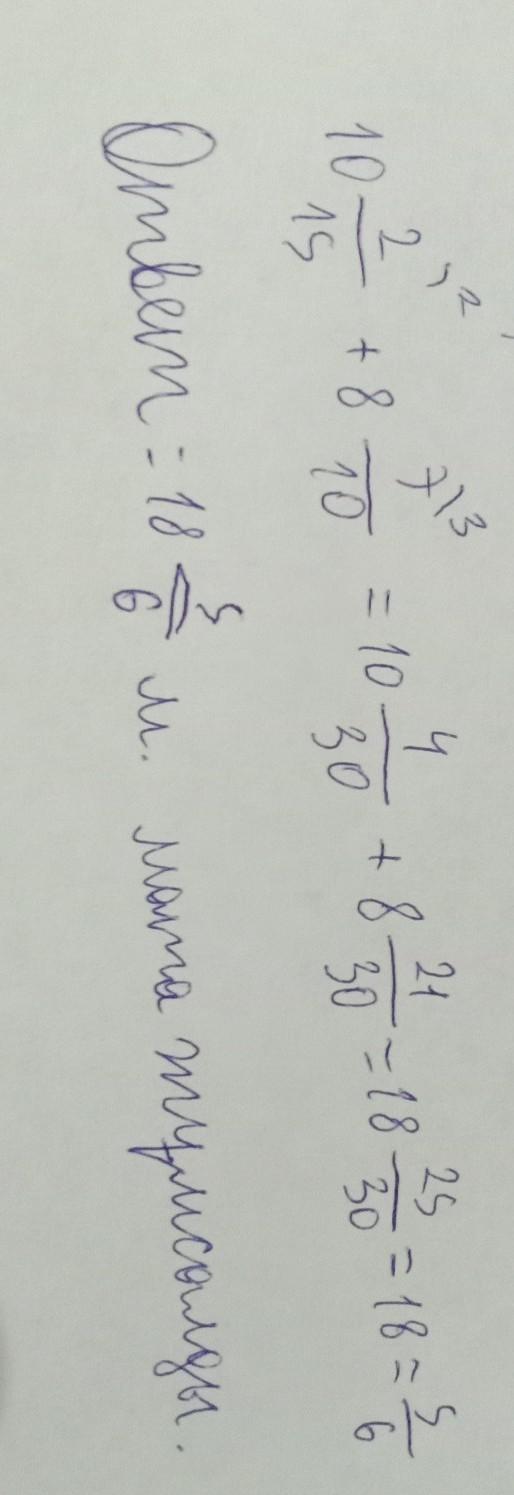 10 2/15 \2 + 8 7/10 \3 = 10 4/30 + 8 21/30 = 18 25/30 = 18 = 5/6
Ответ = 18 5/6 м. мата